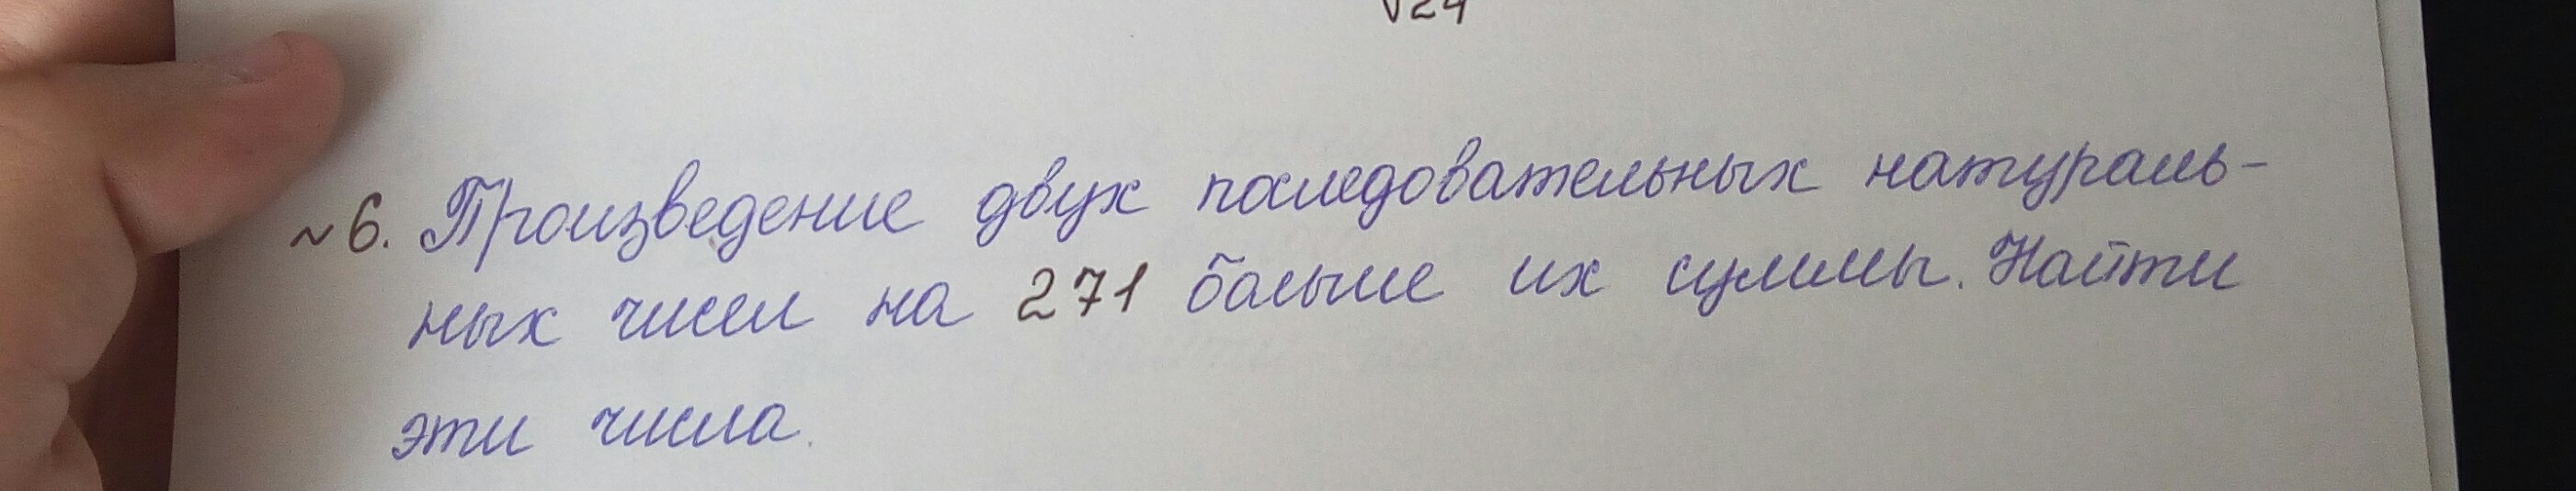 √24
~6. Произведение двух последовательных натураль-
ных чисел на 271 больше их суммы. Найти
эти числа.